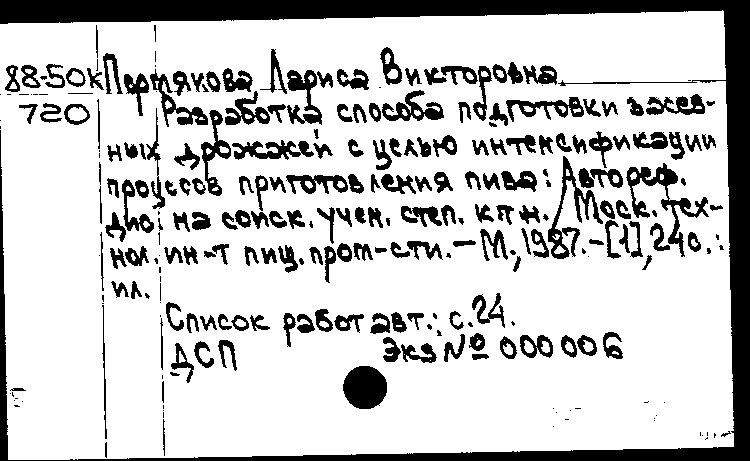 88-50к Пермякова, Лариса Викторовна.
720 Разработка способа подготовки засев-
ных дрожжей с целью интенсификации
процессов приготовления пива: Автореф.
дис. на соиск. учен. степ. к.т.н. / Моск. тех-
нол. ин-т пищ. пром-сти. – М., 1987. – [1], 24 с.:
ил.
Список работ авт.: с. 24.
ДСП Экз № 000006